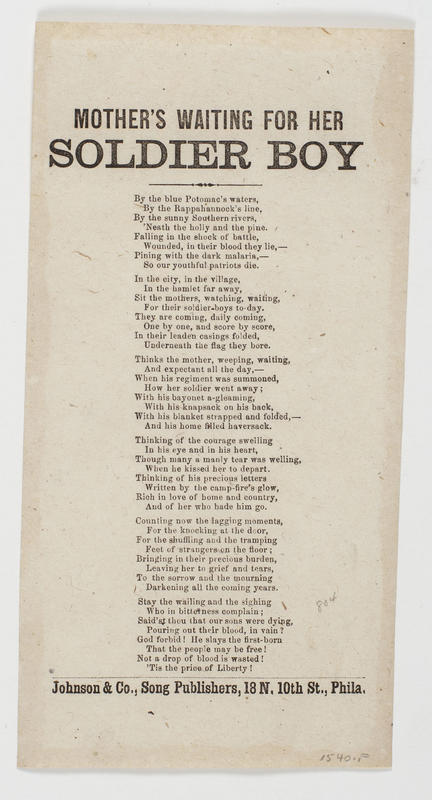 MOTHER'S WAITING FOR HER
SOLDIER BOY
By the blue Potomac's waters,
By the Rappahannock's line,
By the sunny Southern rivers,
'Neath the holly and the pine.
Falling in the shock of battle,
Wounded, in their blood they lie,—
Pining with the dark malaria,—
So our youthful patriots die.
In the city, in the village,
In the hamlet far away,
Sit the mothers, watching, waiting,
For their soldier-boys to-day.
They are coming, daily coming,
One by one, and score by score,
In their leaden casings folded,
Underneath the flag they bore.
Thinks the mother, weeping, waiting,
And expectant all the day,—
When his regiment was summoned,
How her soldier went away;
With his bayonet a-gleaming,
With his knapsack on his back,
With his blanket strapped and folded,—
And his home filled haversack.
Thinking of the courage swelling
In his eye and in his heart,
Though many a manly tear was welling,
When he kissed her to depart.
Thinking of his precious letters
Written by the camp-fire's glow,
Rich in love of home and country,
And of her who bade him go.
Counting now the lagging moments,
For the knocking at the door,
For the shuffling and the tramping
Feet of strangers on the floor;
Bringing in their precious burden,
Leaving her to grief and tears,
To the sorrow and the mourning
Darkening all the coming years.
Stay the wailing and the sighing
Who in bitterness complain;
Said'st thou that our sons were dying,
Pouring out their blood, in vain?
God forbid! He slays the first-born
That the people may be free!
Not a drop of blood is wasted!
'Tis the price of Liberty!
804
Johnson & Co., Song Publishers, 18 N. 10th St., Phila.
1540.F